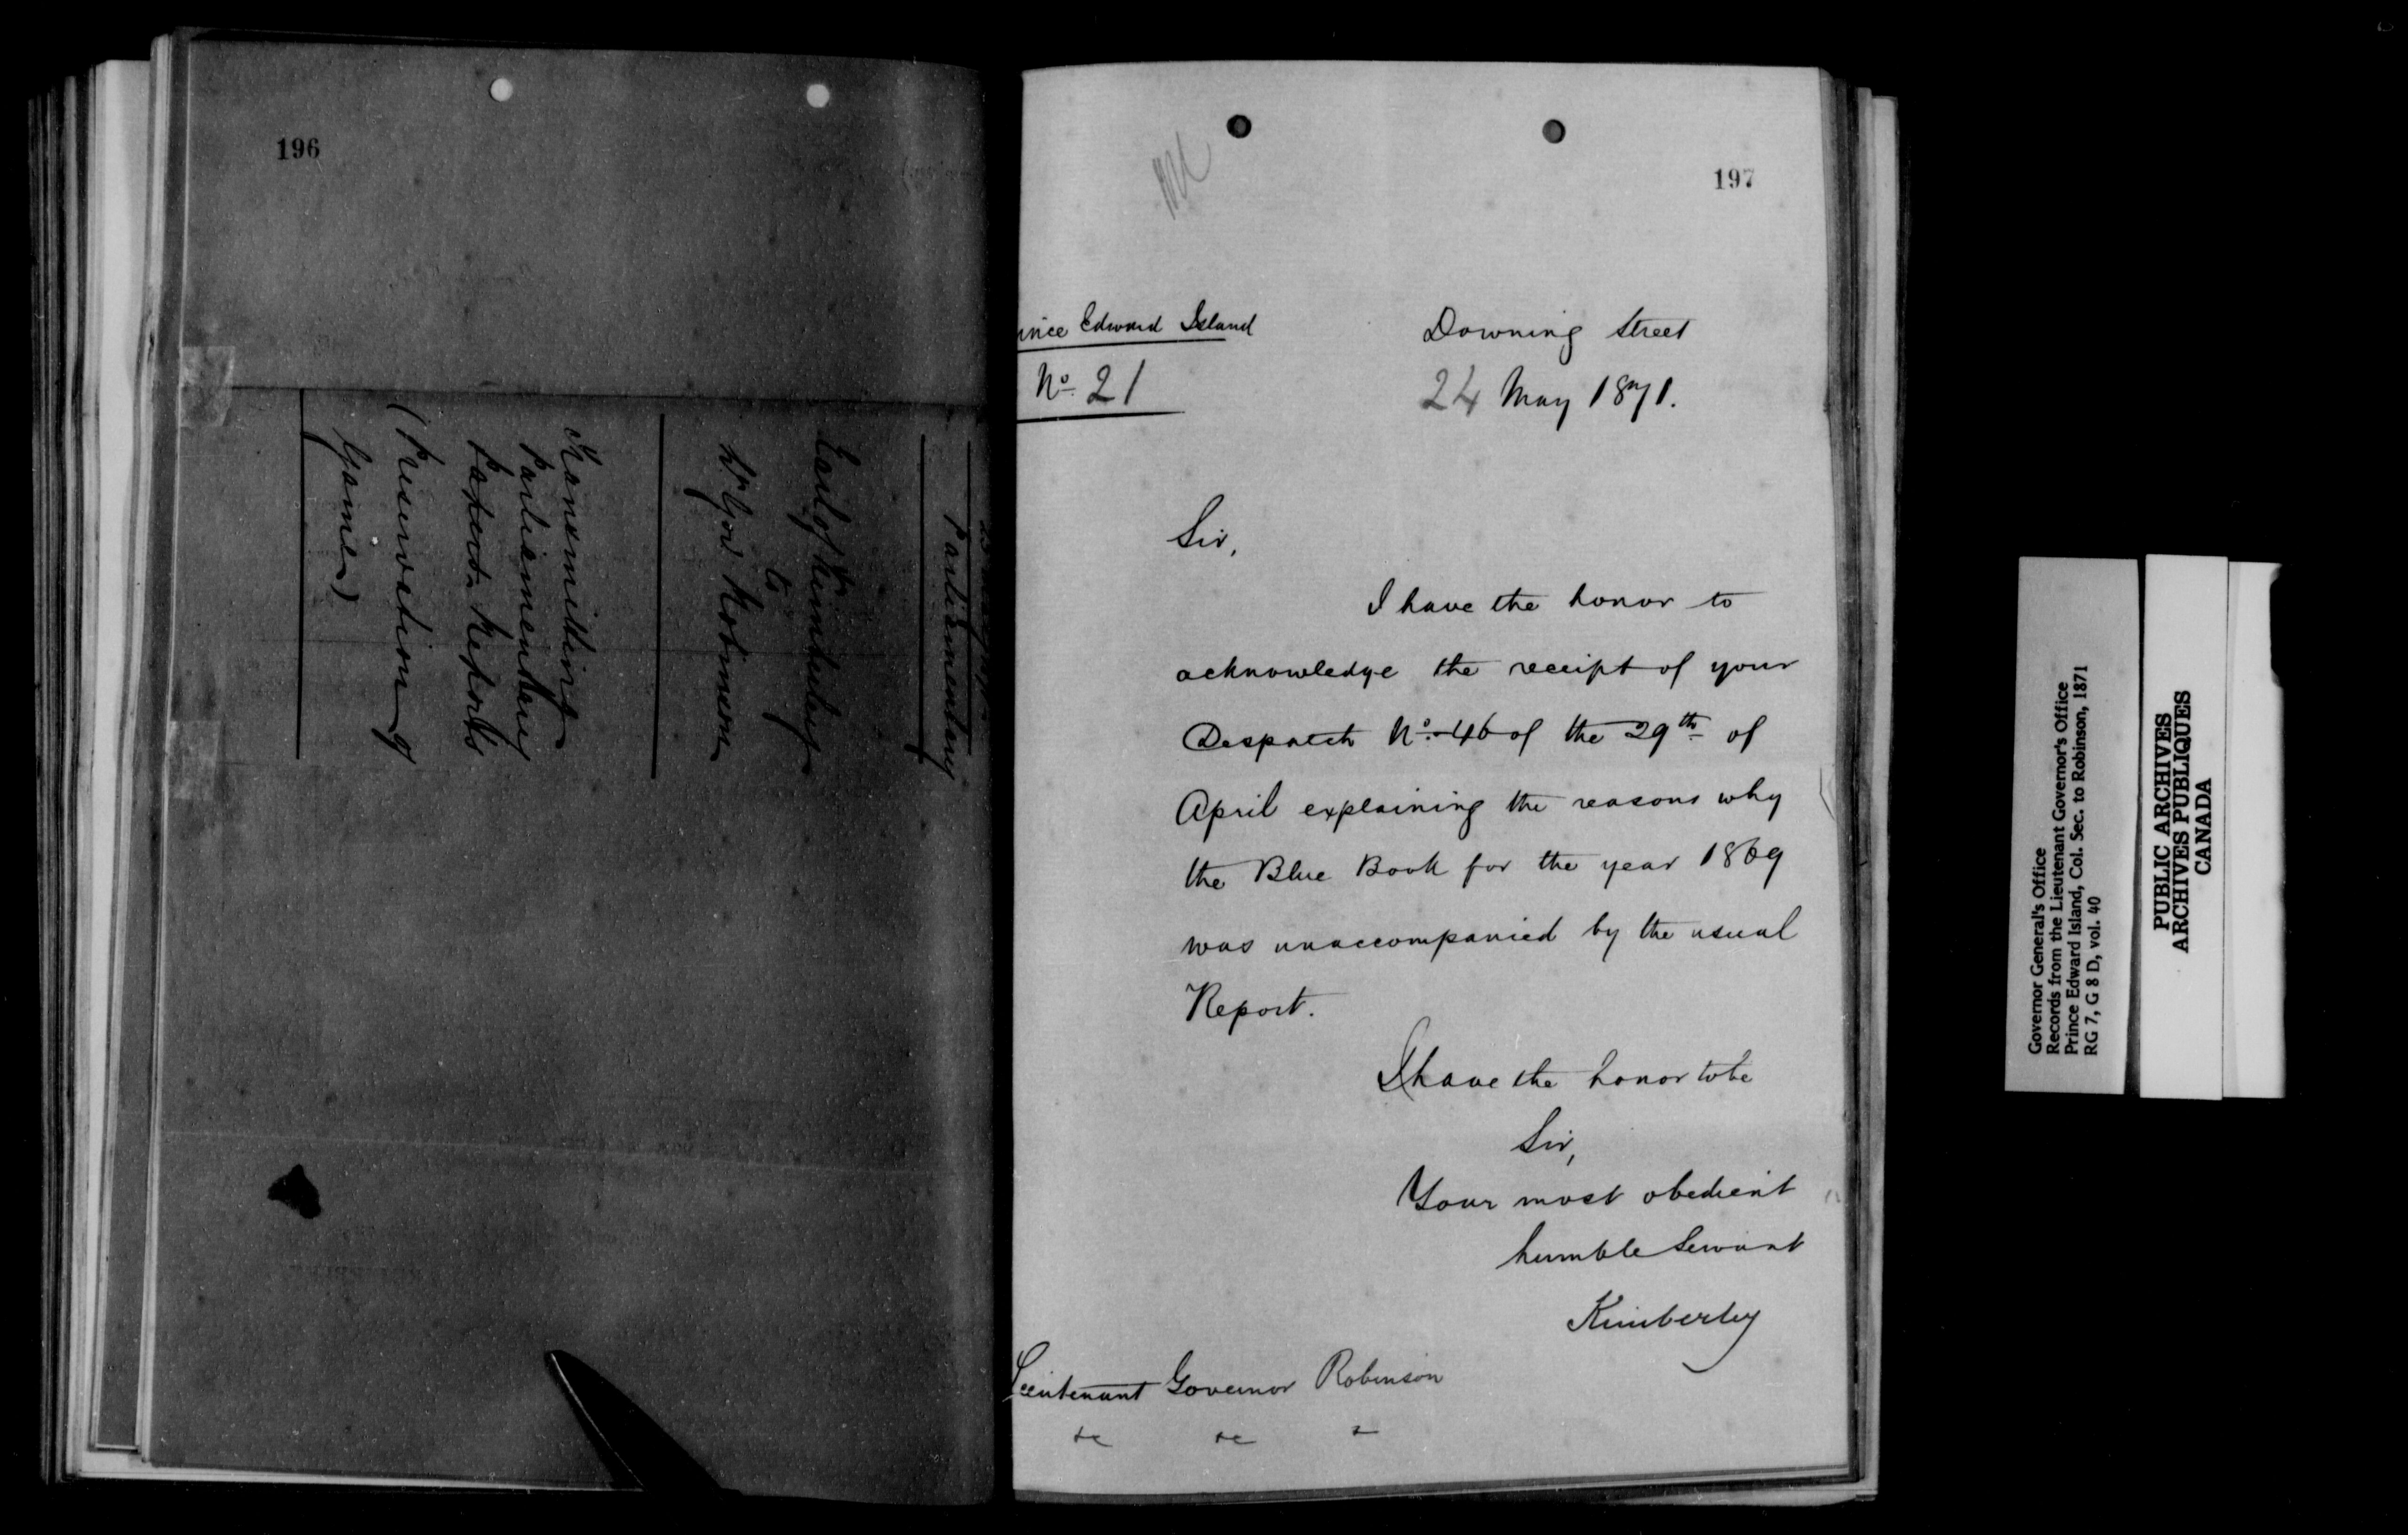 196
Parliamentary
Earl of Kimberley
to
Lt Gov. Robinson
Transmitting
Parliamentary
Reports
(Preservation of
Game)
197
ince Edward Island
No 21
Downing Street
24 May 1871.
Sir,
I have the honor to
acknowledge the receipt of your
Despatch No. 46 of the 29th of
April explaining the reasons why
the Blue Book for the year 1869
was unaccompanied by the usual
Report.
I have the honor to be
Sir,
Your most obedient
humble Servant
Kimberley
Lieutenant Governor Robinson
&c &c &
Governor General's Office
Records from the Lieutenant Governor's Office
Prince Edward Island, Col. Sec. to Robinson, 1871
RG 7, G 8 D, vol. 40
PUBLIC ARCHIVES
ARCHIVES PUBLIQUES
CANADA